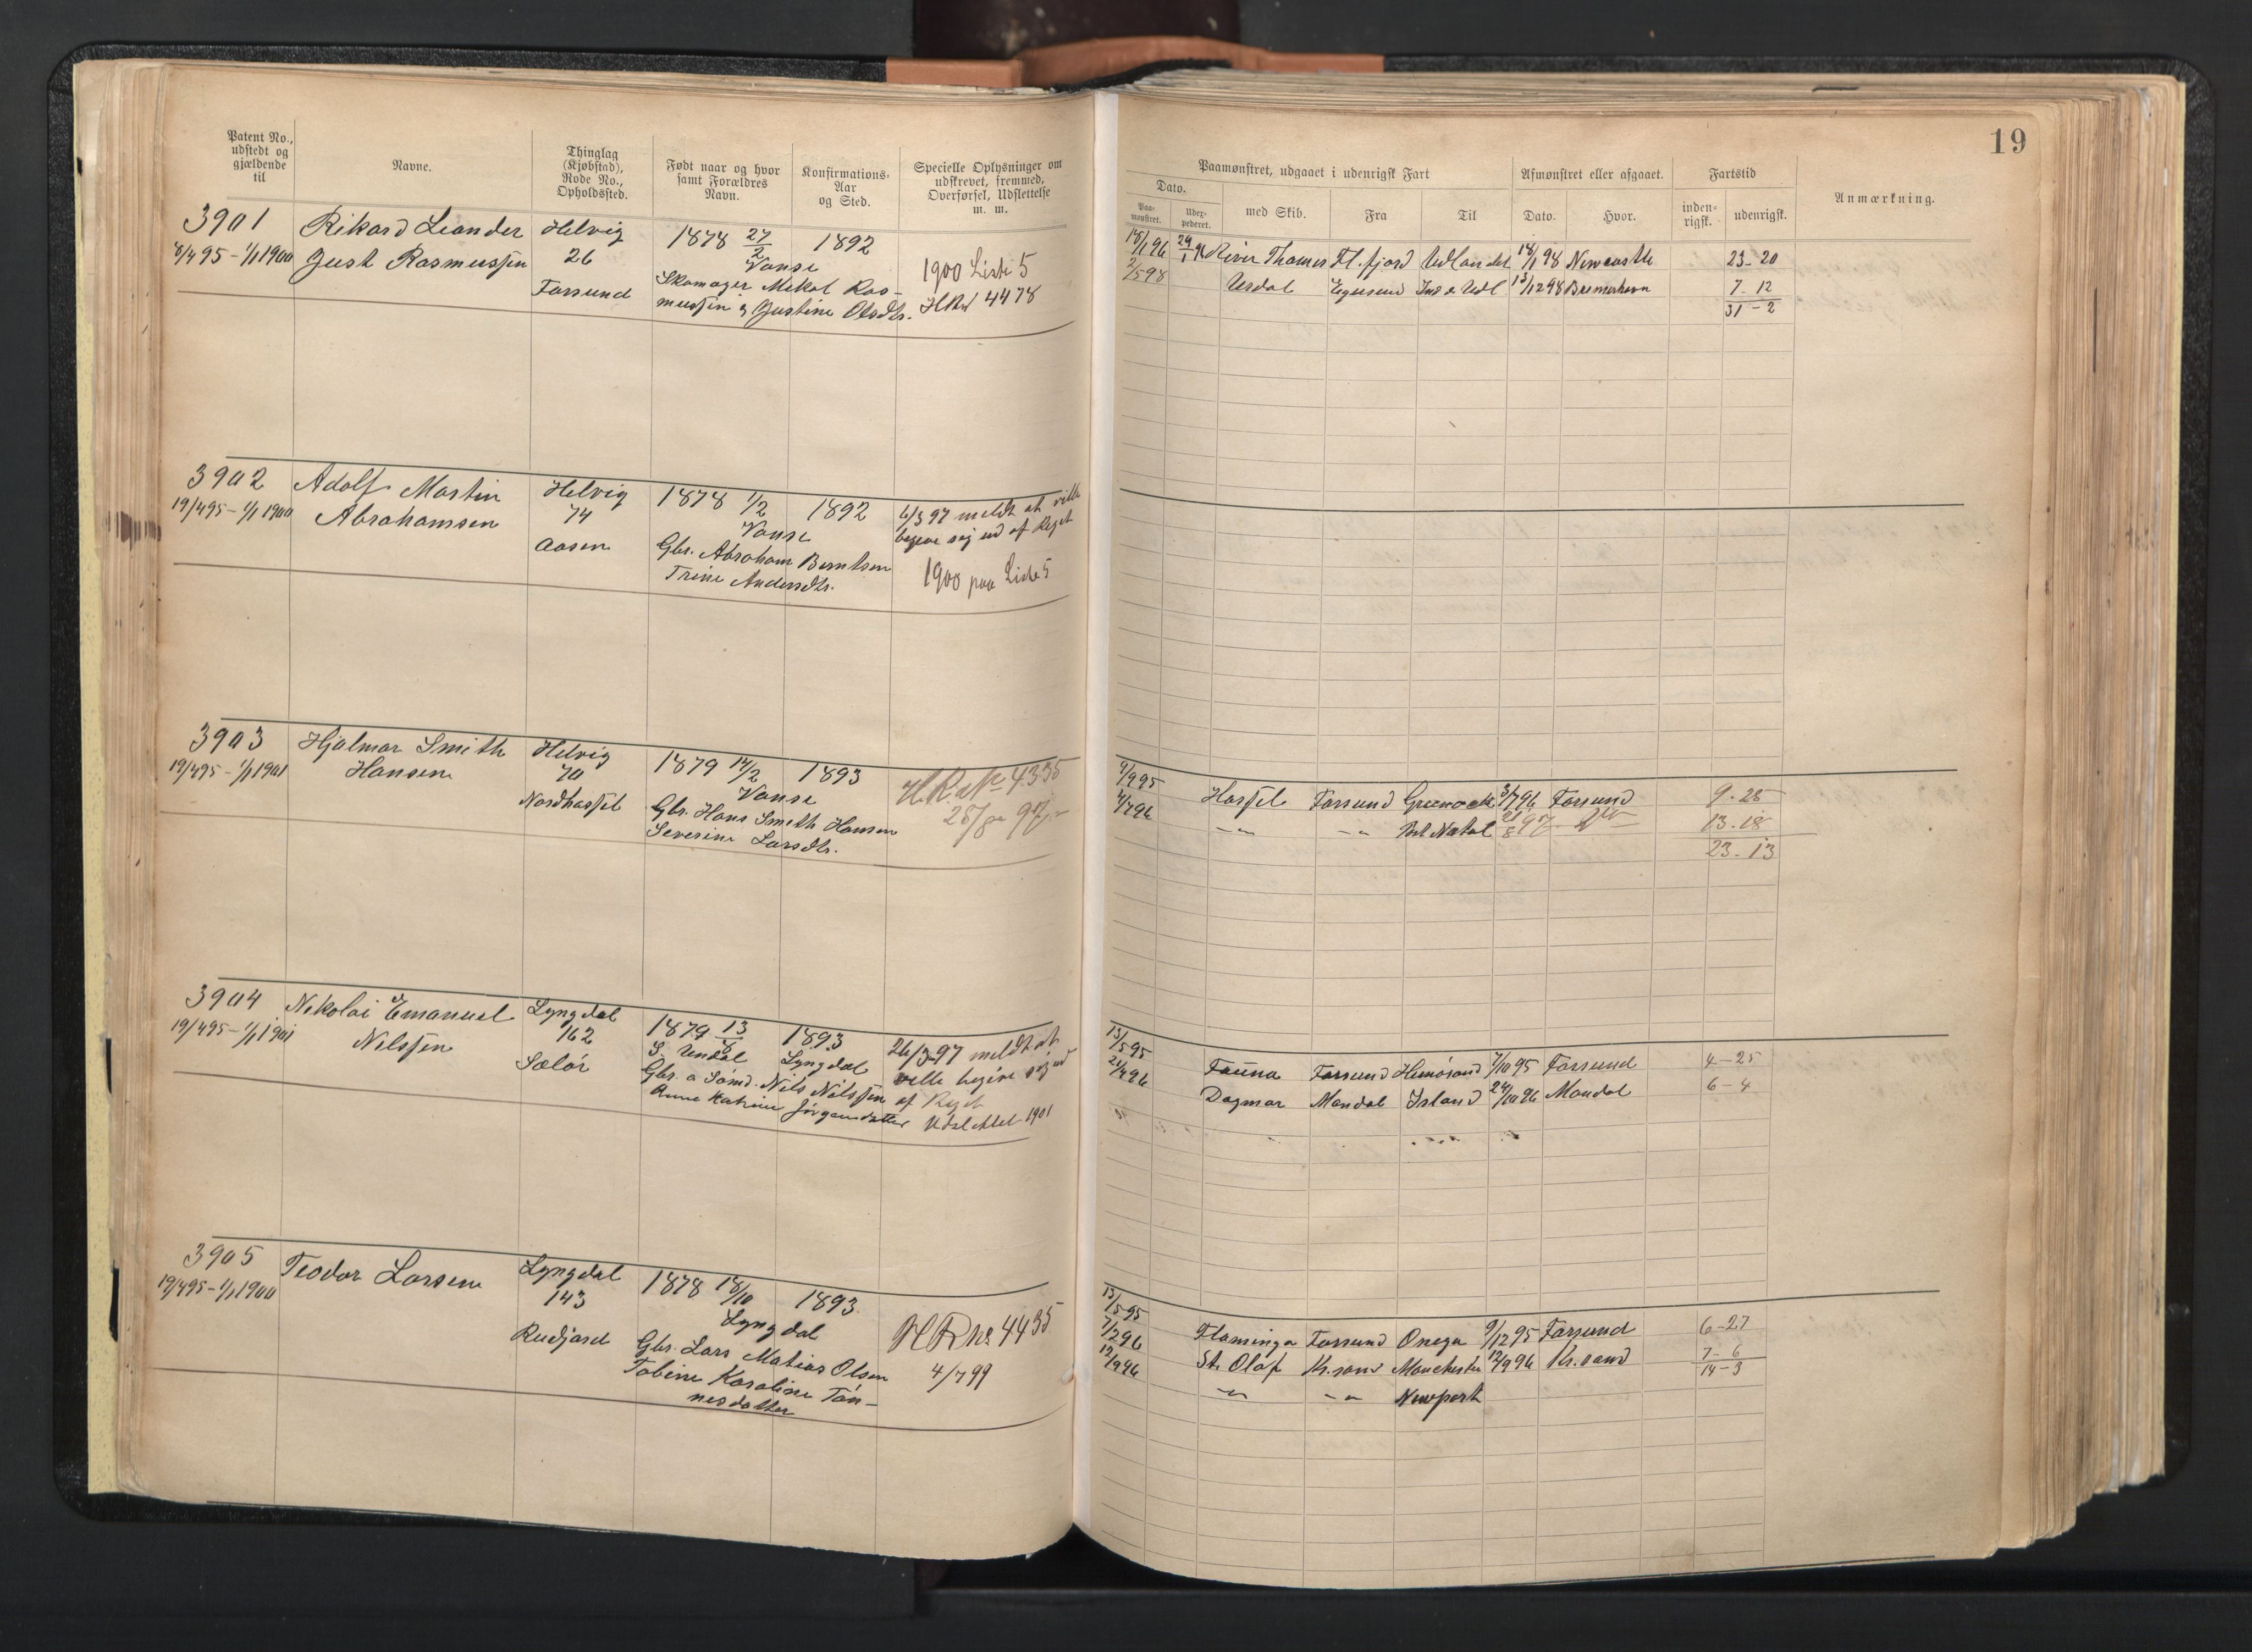 19
Patent No., udstedt og gjældende til
Navne.
Thinglag (Kjøbstad), Rode No., Opholdssted.
Født naar og hvor samt Forældres Navn.
Konfirmations-Aar og Sted.
Specielle Oplysninger om udskrevet, fremmed, Overførsel, Udslettelse m. m.
Paamønstret, udgaaet i udenrigsk Fart
Afmønstret eller afgaaet.
Fartstid
Anmærkning.
Dato.
Paa-mønstret.
Uder-pederet.
med Skib.
Fra
Til
Dato.
Hvor.
inden-rigsk.
udenrigsk.
3901 Rikard Leander Helvig 1878 27/2 1892
8/4 95 - 1/1 1900 Just Rasmussen 26 Vanse 1900 Liste 5
Farsund Skomager Mikal Ras-
mussen & Justine Olsdtr. HRN 4478
18/1 96 29/1 96 River Thames Fl.fjord Udlandet 18/1 98 Newcastle 23-20
2/5 98 Urdal Egersund Ind & Udl 13/12 98 Bremerhavn 7-12
31-2
3902 Adolf Martin Helvig 1878 1/2 1892 6/3 97 meldt at ville
19/4 95 - 1/1 1900 Abrahamsen 74 Vanse begive sig ud af Riget
Aasen Gbr. Abraham Berntsen
Trine Andersdtr. 1900 paa Liste 5
3903 Hjalmar Smith Helvig 1879 14/2 1893 H.R. No 4335
19/4 95 - 1/1 1901 Hansen 70 Vanse
Nordhassel Gbr. Hans Smith Hansen
Severine Larsdtr.
9/9 95 Hassel Farsund Greenock 3/7 96 Farsund 9-25
4/7 96 -"- -"- Port Natal 21/8 97 do 13-18
23-13
3904 Nikolai Emanuel Lyngdal 1879 13/8 1893 26/3 97 meldt at
19/4 95 - 1/1 1901 Nilssen 162 S. Undal Lyngdal ville begive sig ud
Sælør Gbr. a Sømd. Nils Nilssen af Riget
Anne Katrine Jørgensdatter Udslettet 1901
13/5 95 Fauna Farsund Hernösand 7/10 95 Farsund 4-25
21/4 96 Dagmar Mandal Island 24/10 96 Mandal 6-4
3905 Teodor Larsen Lyngdal 1878 18/10 1893
19/4 95 - 1/1 1900 143 Lyngdal HR No 4435
Rudjord Gbr. Lars Matias Olsen
Tobine Karoline Tøn- 4/7 99
nesdatter
13/5 95 Flaminga Farsund Onega 9/12 95 Farsund 6-27
7/2 96 St. Olaf Kr.sand Manchester 12/9 96 Kr.sand 7-6
12/9 96 -"- -"- Newport 14-3